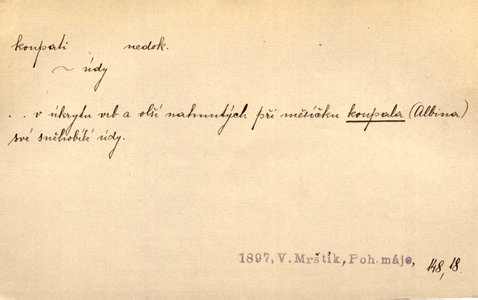 koupati nedok.
~ údy
.. v úkrytu vrb a olší nahnutých při měsíčku koupala (Albina)
své sněhobílé údy.
1897, V. Mrštík, Poh. máje, 148, 18.